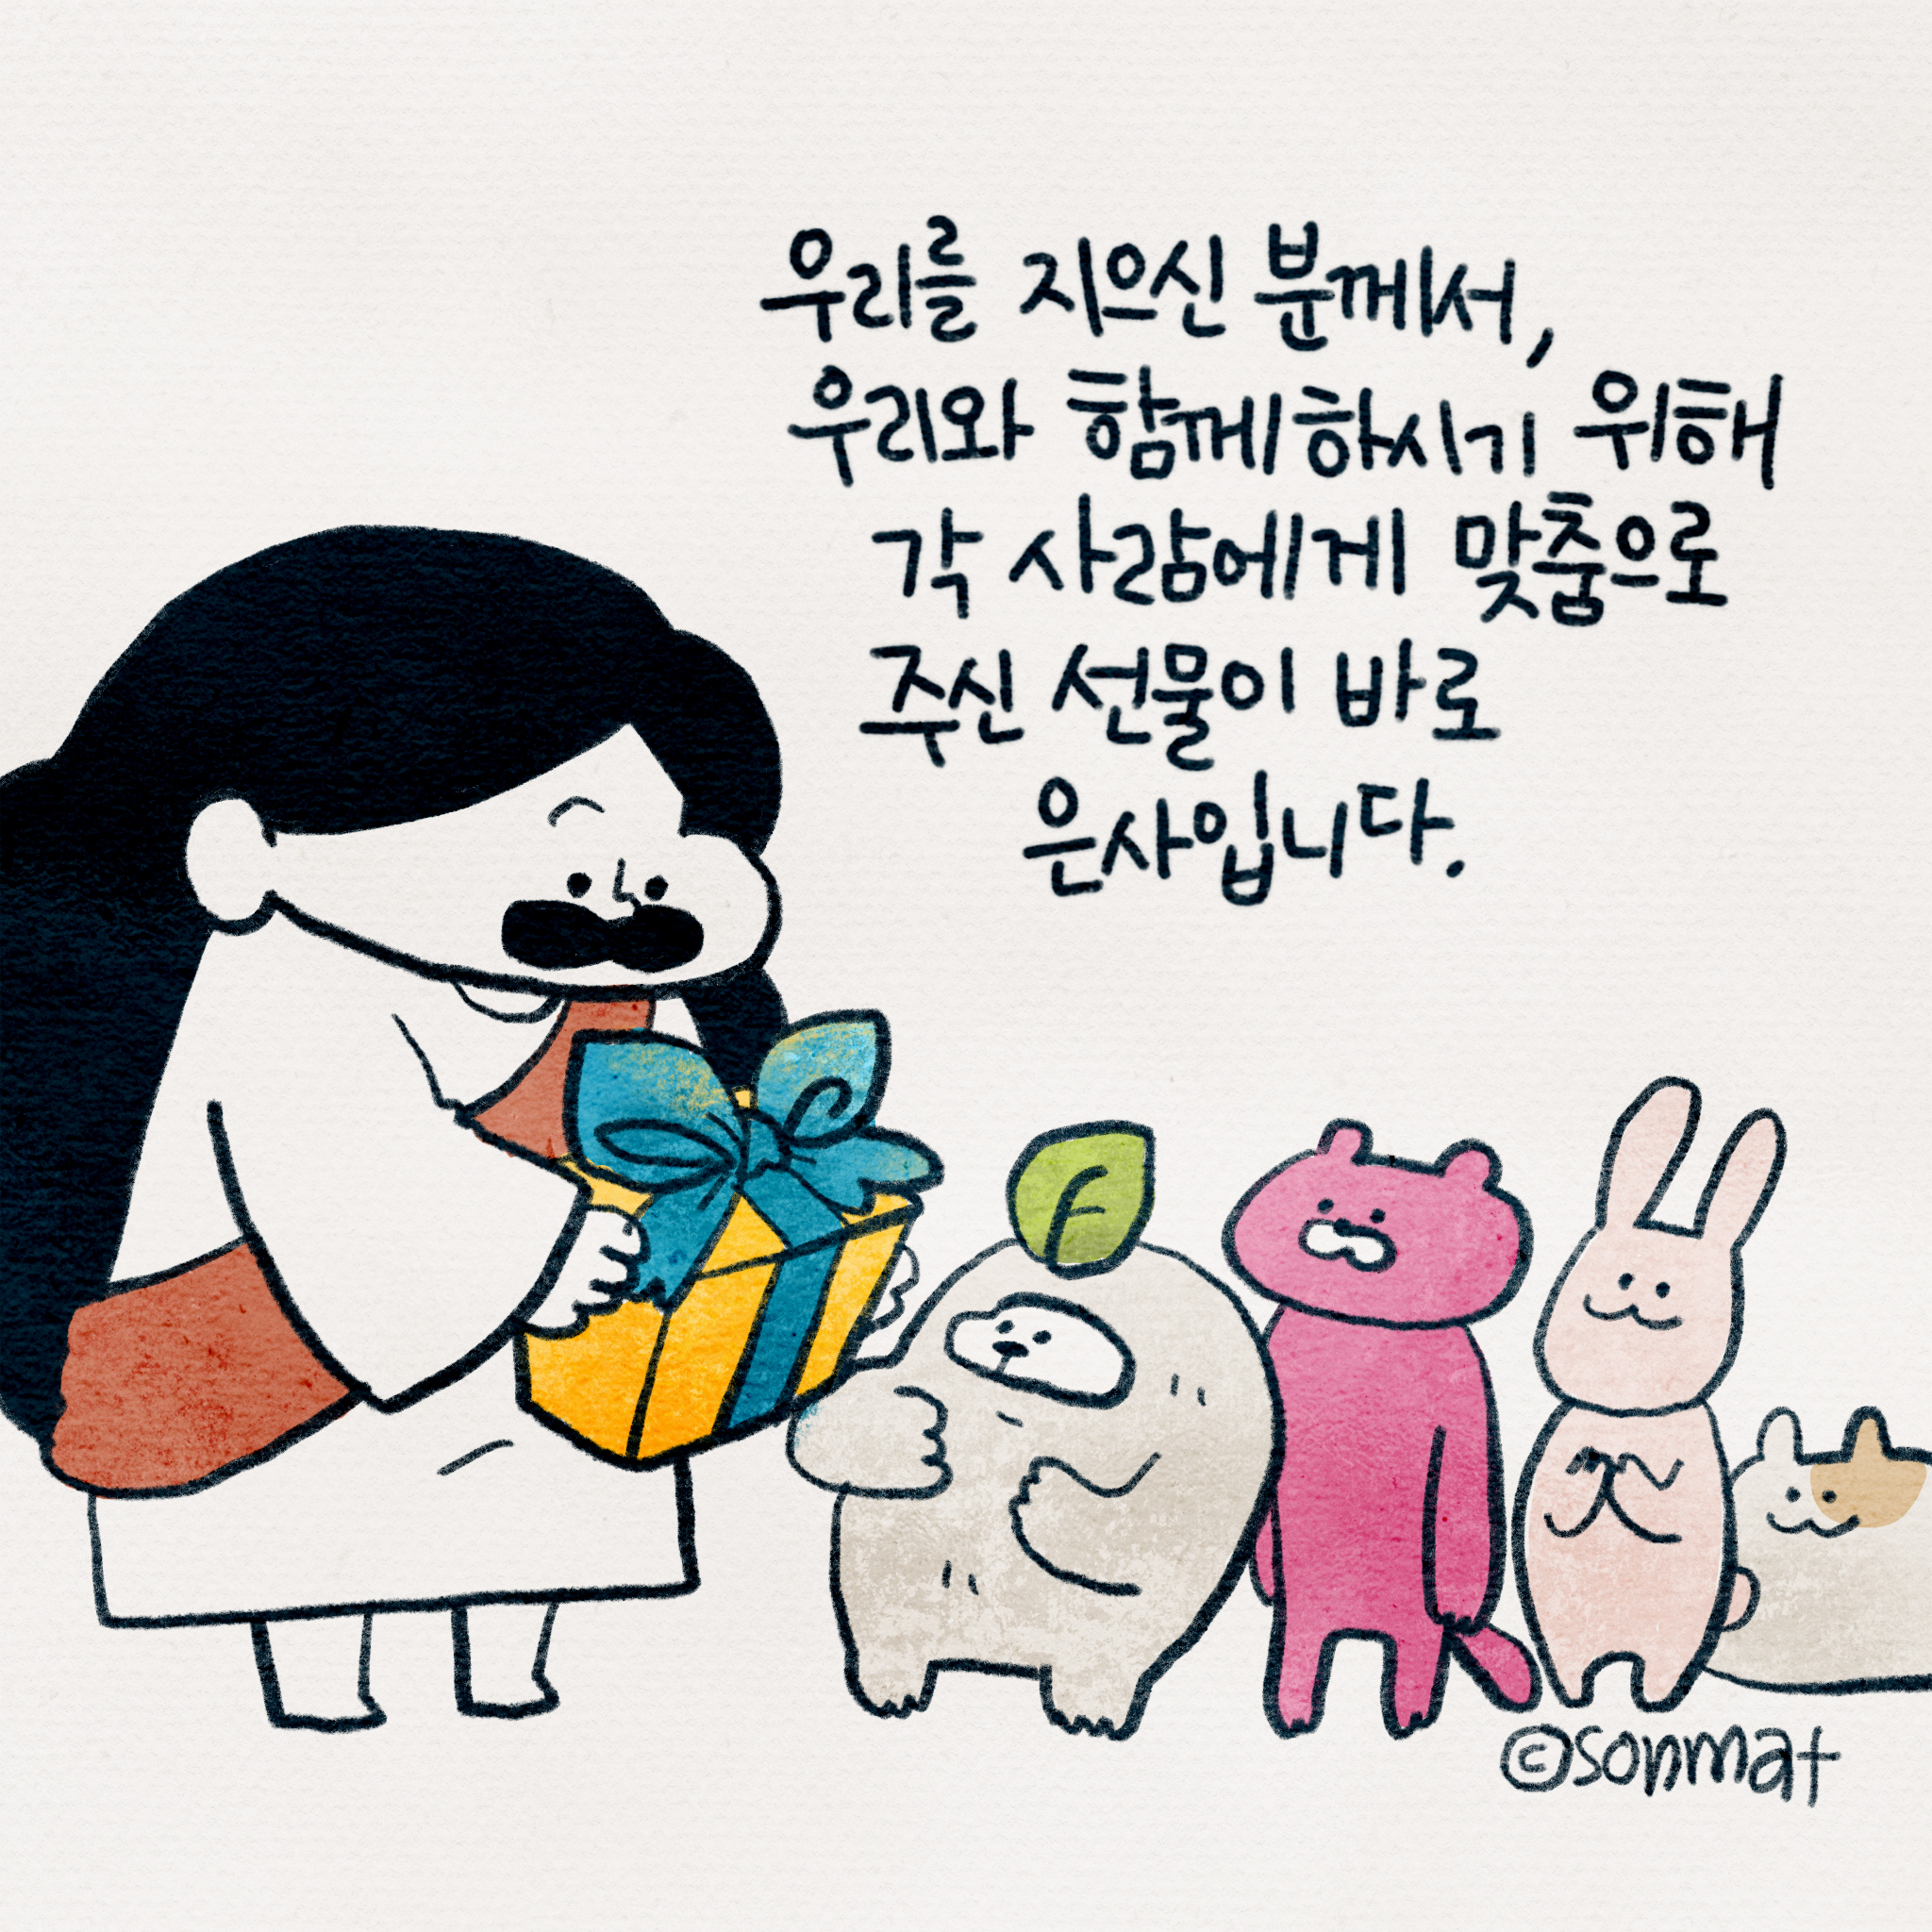 우리를 지으신 분께서,
우리와 함께하시기 위해
각 사람에게 맞춤으로
주신 선물이 바로
은사입니다.
©sonmat